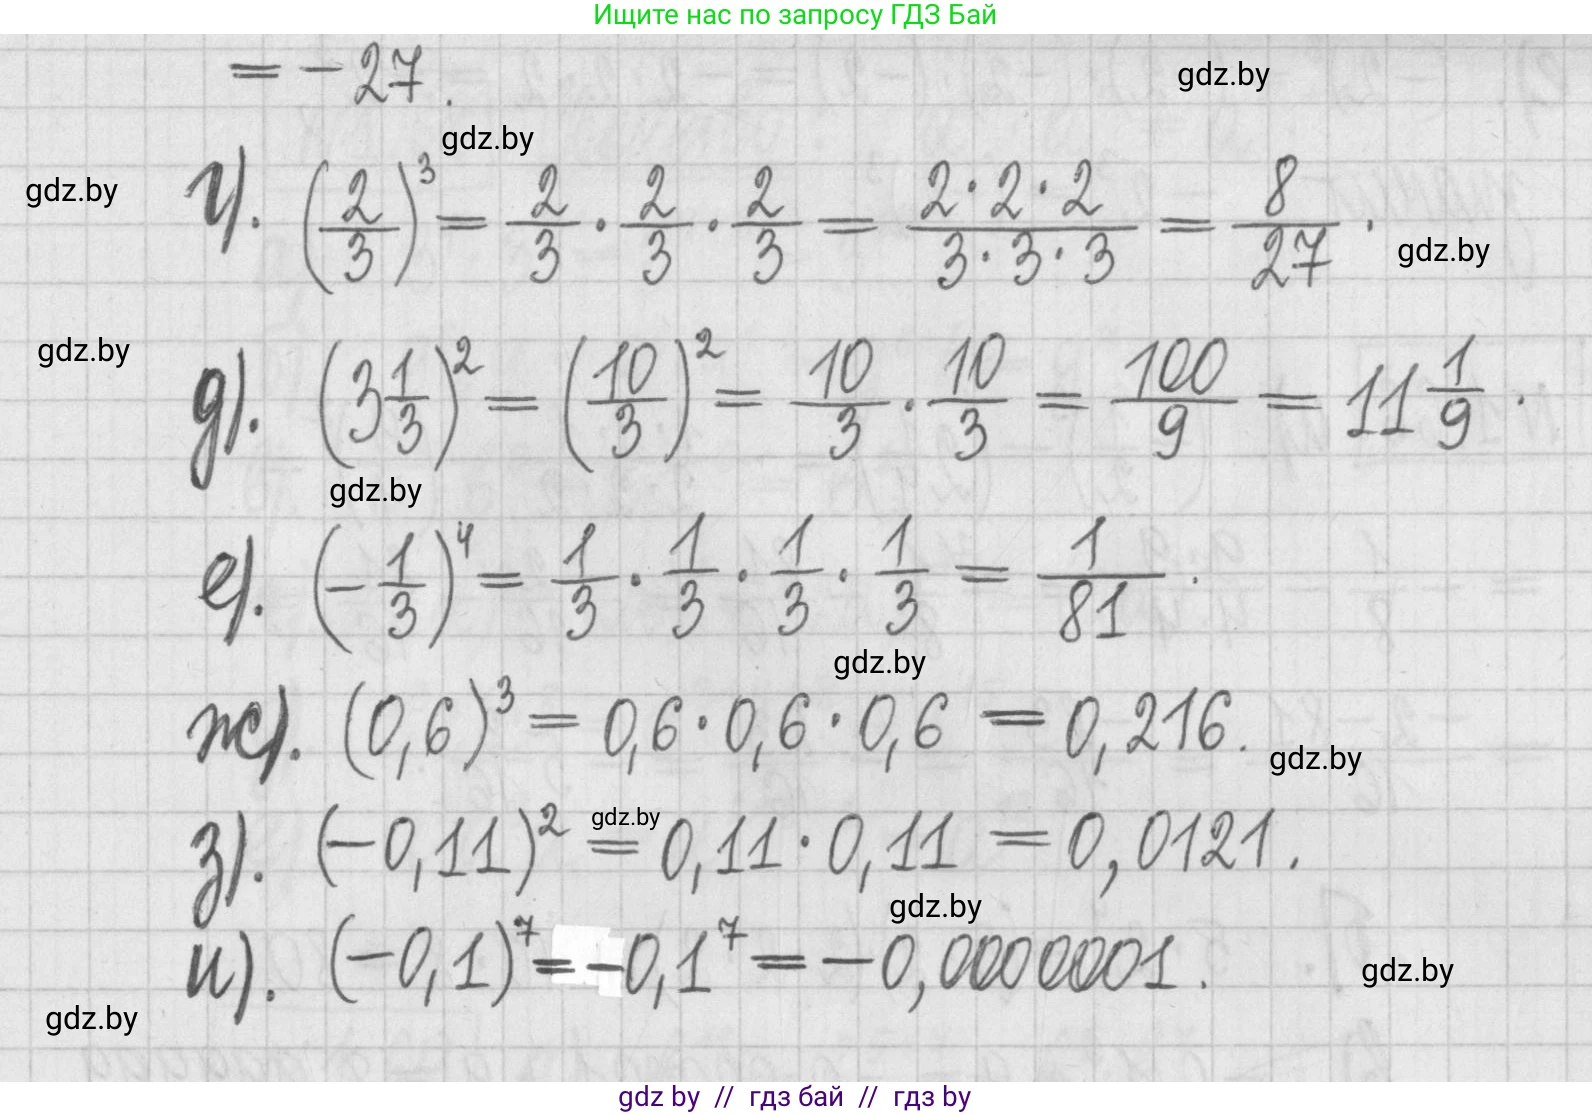 Ищите нас по запросу ГДЗ Бай
= - 27.
gdz.by
gdz.by
gdz.by
г). (2/3)³ = 2/3 · 2/3 · 2/3 = 2·2·2/3·3·3 = 8/27.
gdz.by
gdz.by
д). (3 1/3)² = (10/3)² = 10/3 · 10/3 = 100/9 = 11 1/9.
gdz.by
е). (-1/3)⁴ = 1/3 · 1/3 · 1/3 · 1/3 = 1/81.
gdz.by
ж). (0,6)³ = 0,6 · 0,6 · 0,6 = 0,216.
gdz.by
gdz.by
з). (-0,11)² = 0,11 · 0,11 = 0,0121.
gdz.by
и). (-0,1)⁷ = -0,1⁷ = -0,0000001.
gdz.by
gdz.by
gdz by // гдз бай // гдз by